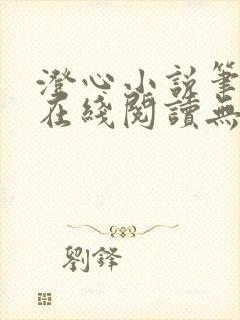 澄心小说筆
在綫閱讀無
劉鋒